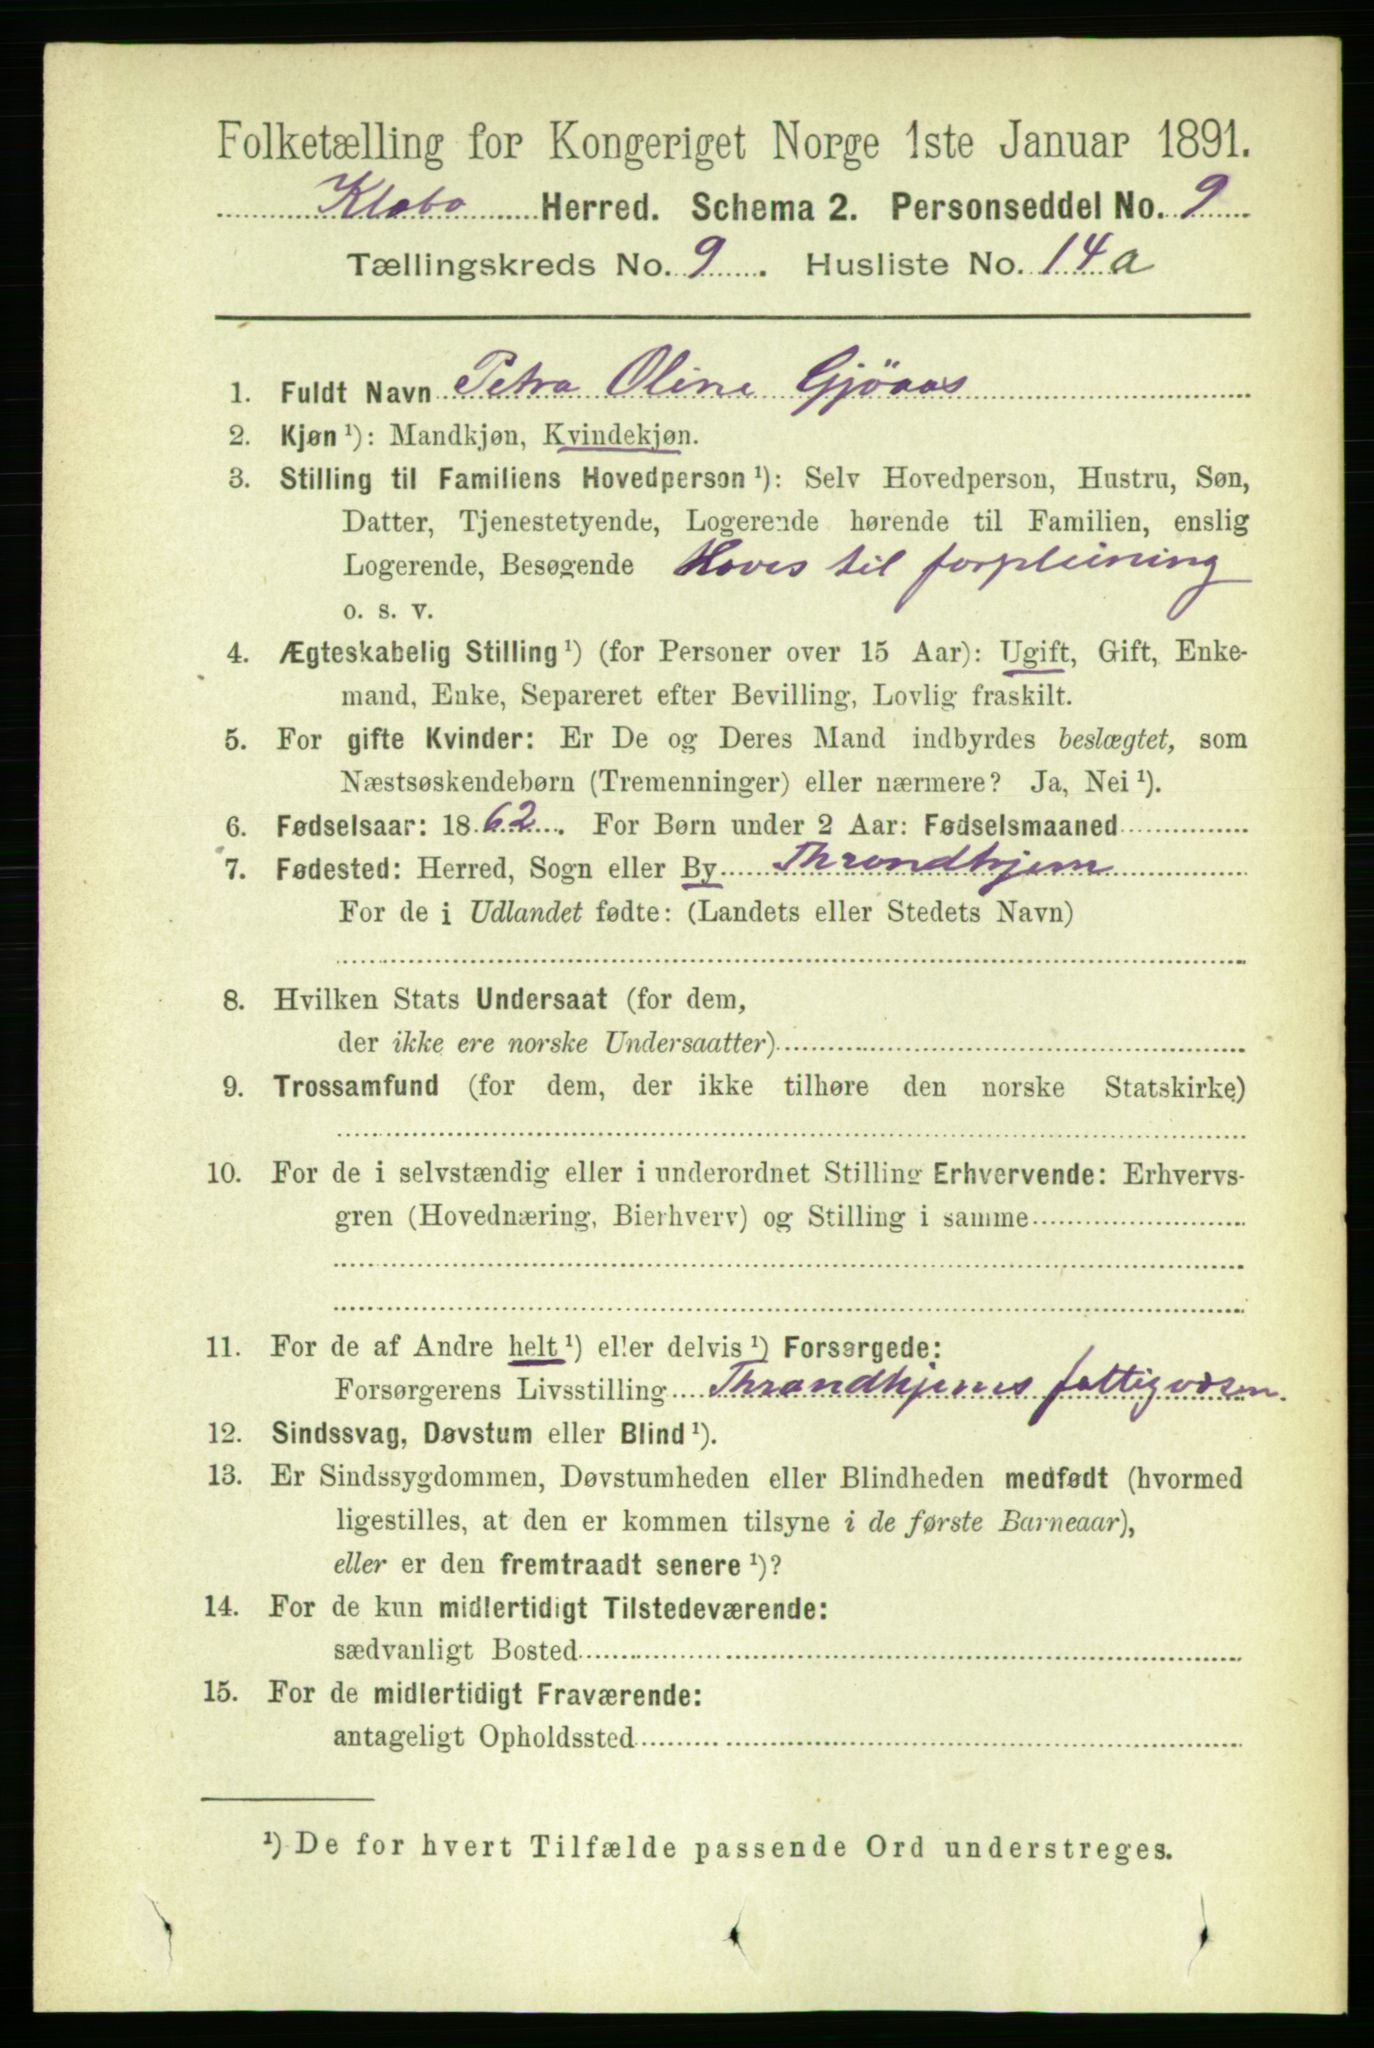 Folketælling for Kongeriget Norge 1ste Januar 1891.
Klebo Herred. Schema 2. Personseddel No. 9
Tællingskreds No. 9. Husliste No. 14 a
1. Fuldt Navn Petra Oline Gjöaas
2. Kjøn ¹): Mandkjøn, Kvindekjøn.
3. Stilling til Familiens Hovedperson ¹): Selv Hovedperson, Hustru, Søn,
Datter, Tjenestetyende, Logerende hørende til Familien, enslig
Logerende, Besøgende Haves til forpleining
o. s. v.
4. Ægteskabelig Stilling ¹) (for Personer over 15 Aar): Ugift, Gift, Enke-
mand, Enke, Separeret efter Bevilling, Lovlig fraskilt.
5. For gifte Kvinder: Er De og Deres Mand indbyrdes beslægtet, som
Næstsøskendebørn (Tremenninger) eller nærmere? Ja, Nei ¹).
6. Fødselsaar: 1862. For Børn under 2 Aar: Fødselsmaaned
7. Fødested: Herred, Sogn eller By Throndhjem
For de i Udlandet fødte: (Landets eller Stedets Navn)
8. Hvilken Stats Undersaat (for dem,
der ikke ere norske Undersaatter)
9. Trossamfund (for dem, der ikke tilhøre den norske Statskirke)
10. For de i selvstændig eller i underordnet Stilling Erhvervende: Erhvervs-
gren (Hovednæring, Bierhverv) og Stilling i samme
11. For de af Andre helt ¹) eller delvis ¹) Forsørgede:
Forsørgerens Livsstilling Throndhjems fattigvæsen.
12. Sindssvag, Døvstum eller Blind ¹).
13. Er Sindssygdommen, Døvstumheden eller Blindheden medfødt (hvormed
ligestilles, at den er kommen tilsyne i de første Barneaar),
eller er den fremtraadt senere ¹)?
14. For de kun midlertidigt Tilstedeværende:
sædvanligt Bosted
15. For de midlertidigt Fraværende:
antageligt Opholdssted
¹) De for hvert Tilfælde passende Ord understreges.